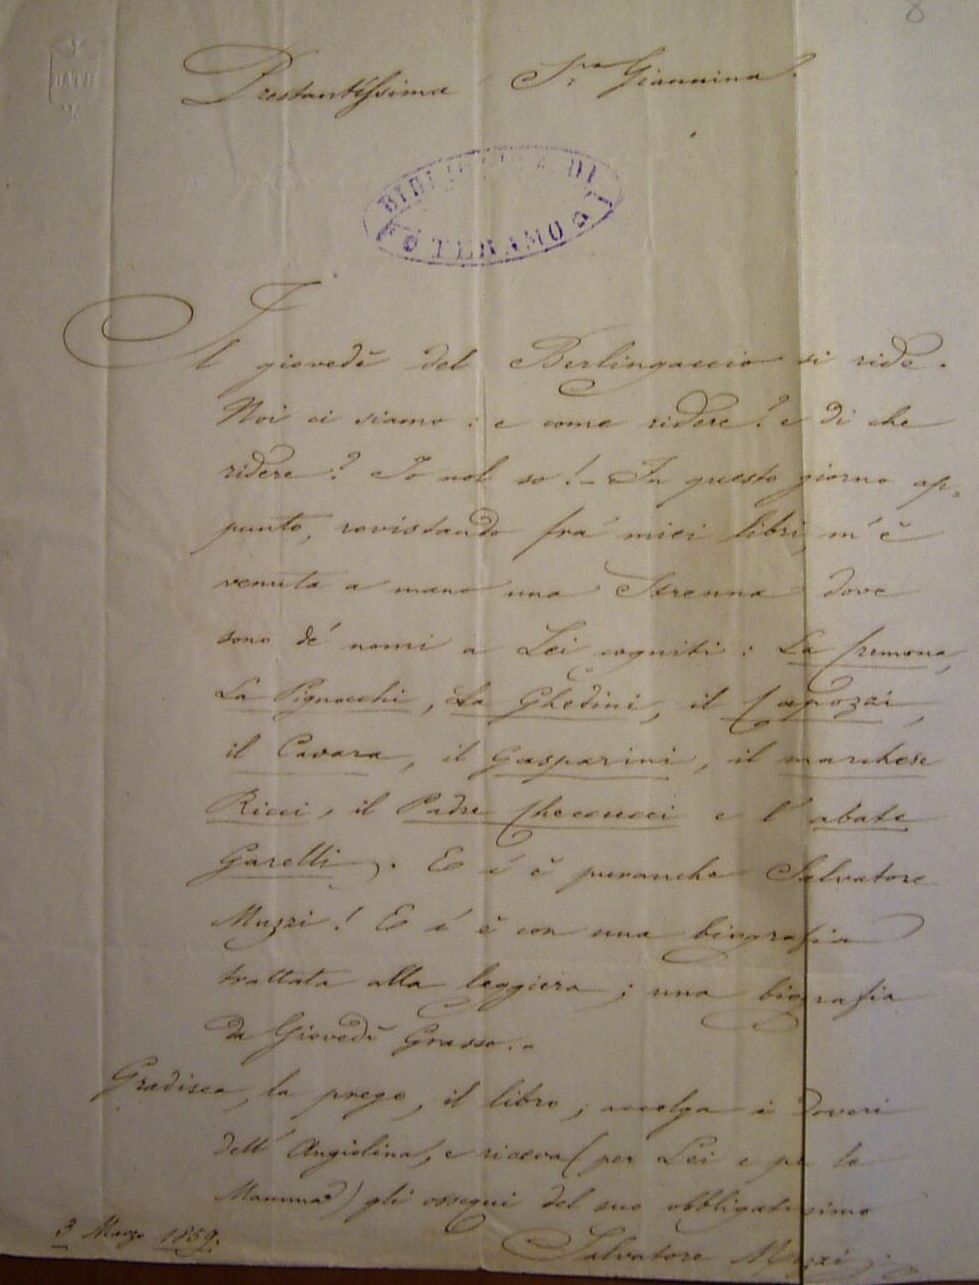 8
BATH
Prestantissima S.ra Giannina.
BIBLIOTECA DI
TERAMO
Il giovedì del Berlingaccio si ride.
Noi ci siamo: e come ridere? e di che
ridere? Io nol so!- In questo giorno ap=
punto, rovistando fra' miei libri, m'è
venuta a mano una Strenna dove
sono de' nomi a Lei cogniti: La Cremona,
La Pignocchi, La Ghedini, il Capozzi,
il Cavara, il Gasparini, il marchese
Ricci, il Padre Checcucci e l'abate
Garelli. E v'è puranche Salvatore
Muzzi! E v'è con una biografia
trattata alla leggiera; una biografia
da Giovedì Grasso.-
Gradisca, la prego, il libro; accolga i doveri
dell'Angiolina, e riceva (per Lei e per la
Mamma) gli ossequi del suo obbligatissimo
3 Marzo 1859.
Salvatore Muzzi